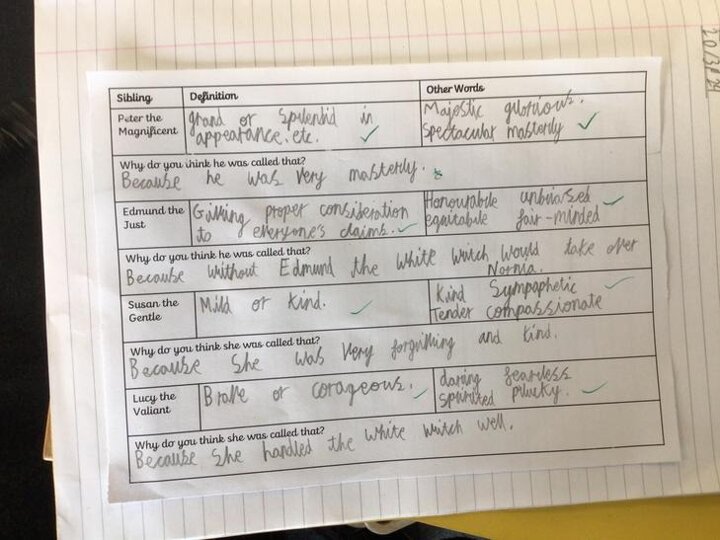 Sibling Definition Other Words
Peter the Magnificent
grand or Splendid in
appearance. etc.
Majestic glorious.
Spectacular masterly
Why do you think he was called that?
Because he was very masterly.
Edmund the Just
Giving proper consideration
to everyone's claims.
Honourable unbiased
equitabile fair-minded
Why do you think he was called that?
Because without Edmund the white witch would take over
Nornia.
Susan the Gentle
Mild or Kind.
Kind Sympaphetic
Tender compassionate
Why do you think she was called that?
Because She was very forgiving and kind.
Lucy the Valiant
Brave or corageous.
daring fearless
Spirited Plucky.
Why do you think she was called that?
Because She handled the white witch well.